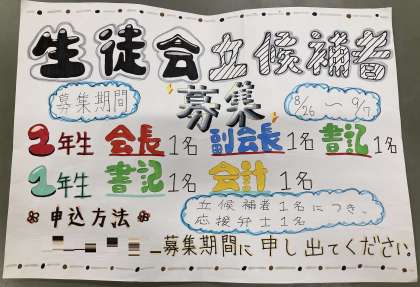 生徒会立候補者
募集
募集期間
8/26 〜 9/7
2年生 会長1名 副会長1名 書記1名
1年生 書記1名 会計1名
立候補者1名につき、
応援弁士1名
申込方法
募集期間に申し出てください。